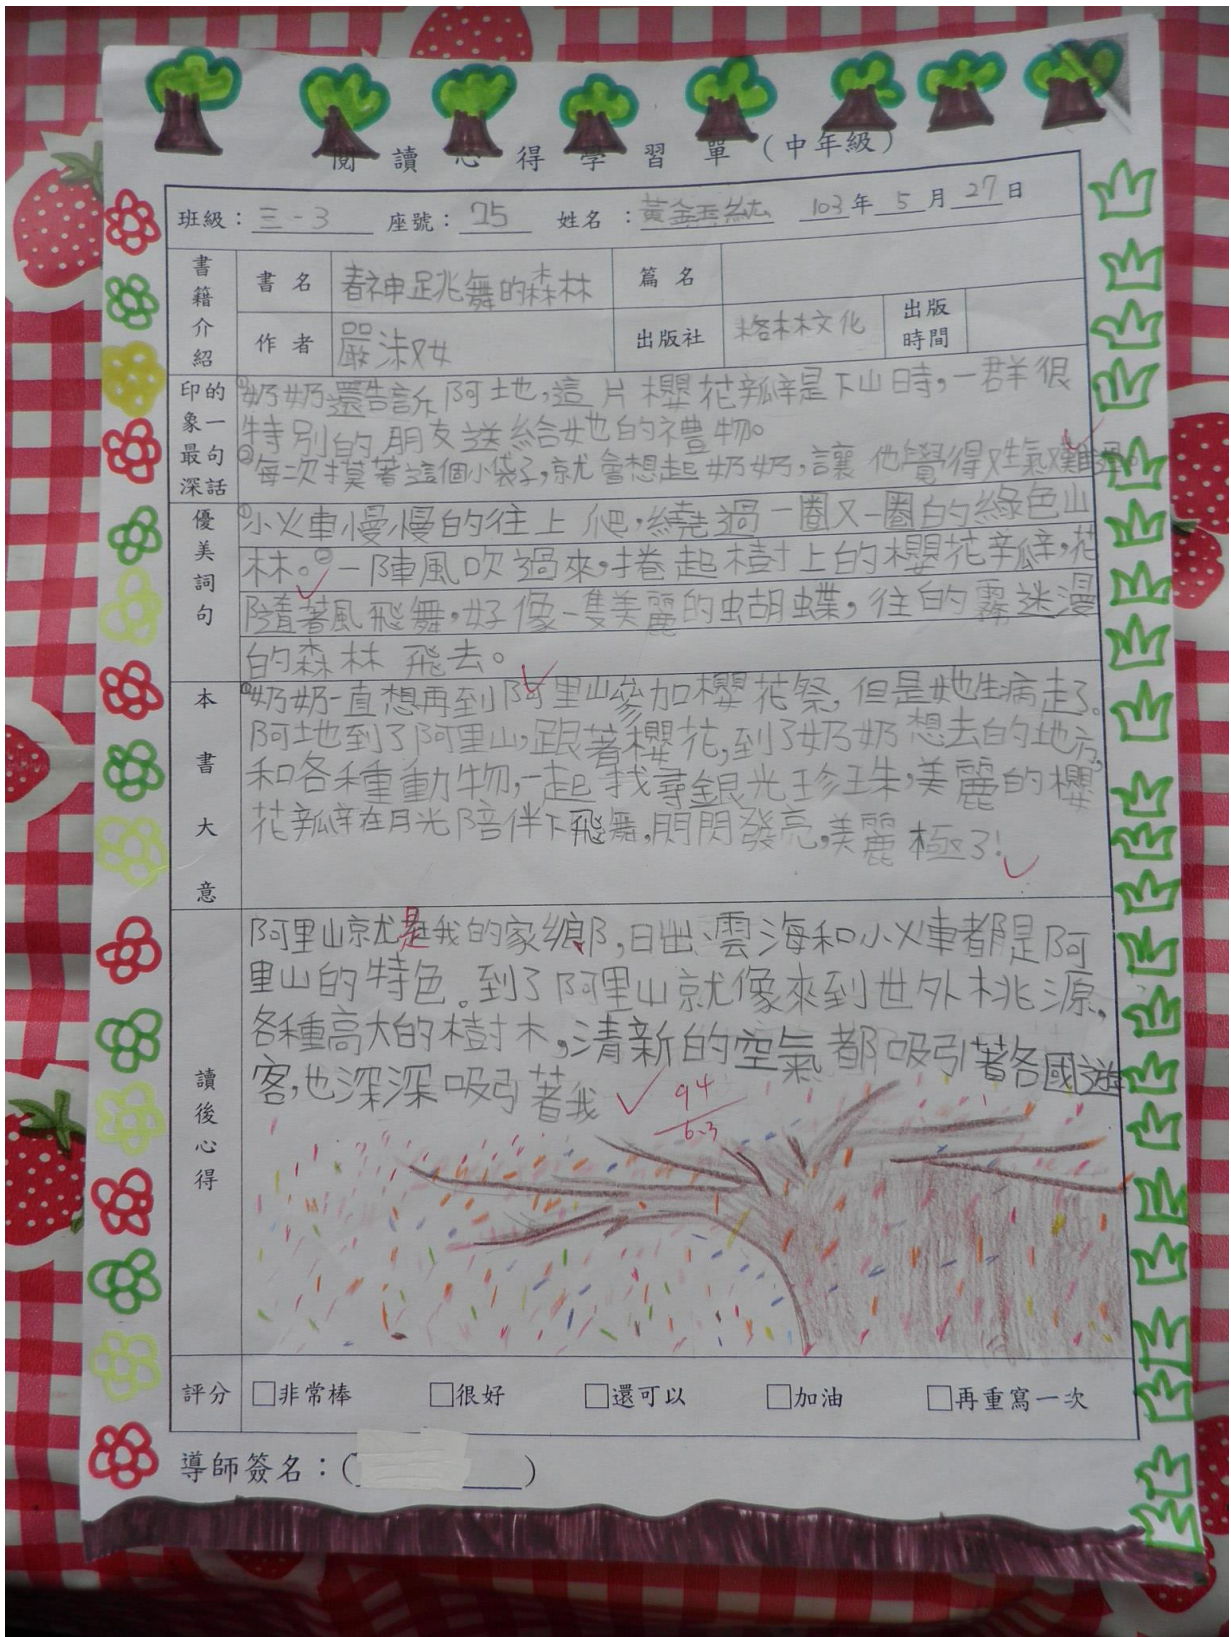 閱讀心得學習單(中年級)
班級：三-3 座號：25 姓名：黃鈺紘 103年5月27日
書籍介紹 書名 春神跳舞的森林 篇名
作者 嚴淑女 出版社 格林文化 出版時間
印象最深的一句話 ①奶奶還告訴阿地，這片櫻花瓣是下山時，一群很
特別的朋友送給她的禮物。
②每次摸著這個小袋子，就會想起奶奶，讓他覺得又生氣又難過
優美詞句 ①小火車慢慢的往上爬，繞過一圈又一圈的綠色山
林。②一陣風吹過來，捲起樹上的櫻花瓣，花
隨著風飛舞，好像一隻美麗的蝴蝶，往白霧迷漫
的森林飛去。
本書大意 ①奶奶一直想再到阿里山參加櫻花祭，但是她生病走了。
阿地到了阿里山，跟著櫻花，到了奶奶想去的地方，
和各種動物，一起找尋銀光珍珠，美麗的櫻
花瓣在月光陪伴下飛舞，閃閃發亮，美麗極了！
讀後心得 阿里山就是我的家鄉，日出、雲海和小火車都是阿
里山的特色。到了阿里山就像來到世外桃源，
各種高大的樹木，清新的空氣都吸引著各國遊
客，也深深吸引著我
94
6.3
評分 □非常棒 □很好 □還可以 □加油 □再重寫一次
導師簽名：( )